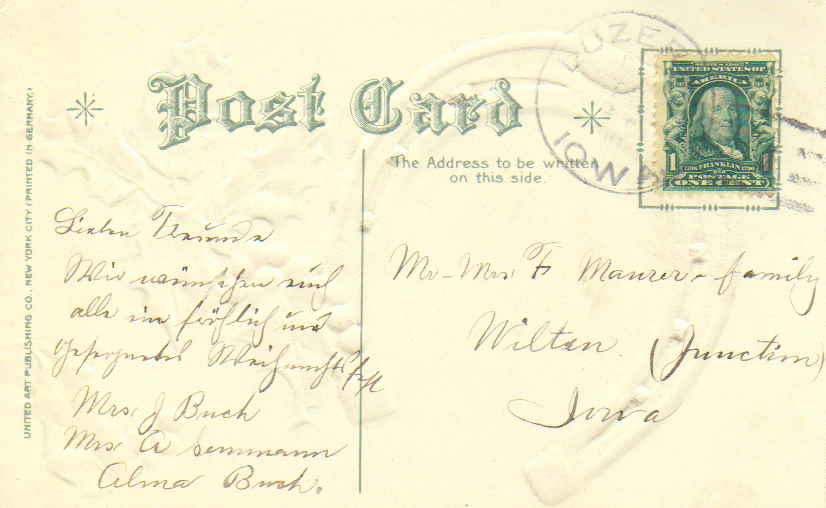 Post Card
The Address to be written
on this side.
LUZER
IOWA
UNITED STATES OF
AMERICA
1 FRANKLIN 1
POSTAGE
ONE CENT
UNITED ART PUBLISHING CO., NEW YORK CITY. (PRINTED IN GERMANY.)
Lieben Freunde
Wir wünschen euch
alle ein fröhlich und
Gesegnetes Weihnachtsfest
Mrs. J Buch
Mrs. A
Alma Buch.
Mr - Mrs F Maurer & family
Wilton (Junction)
Iowa